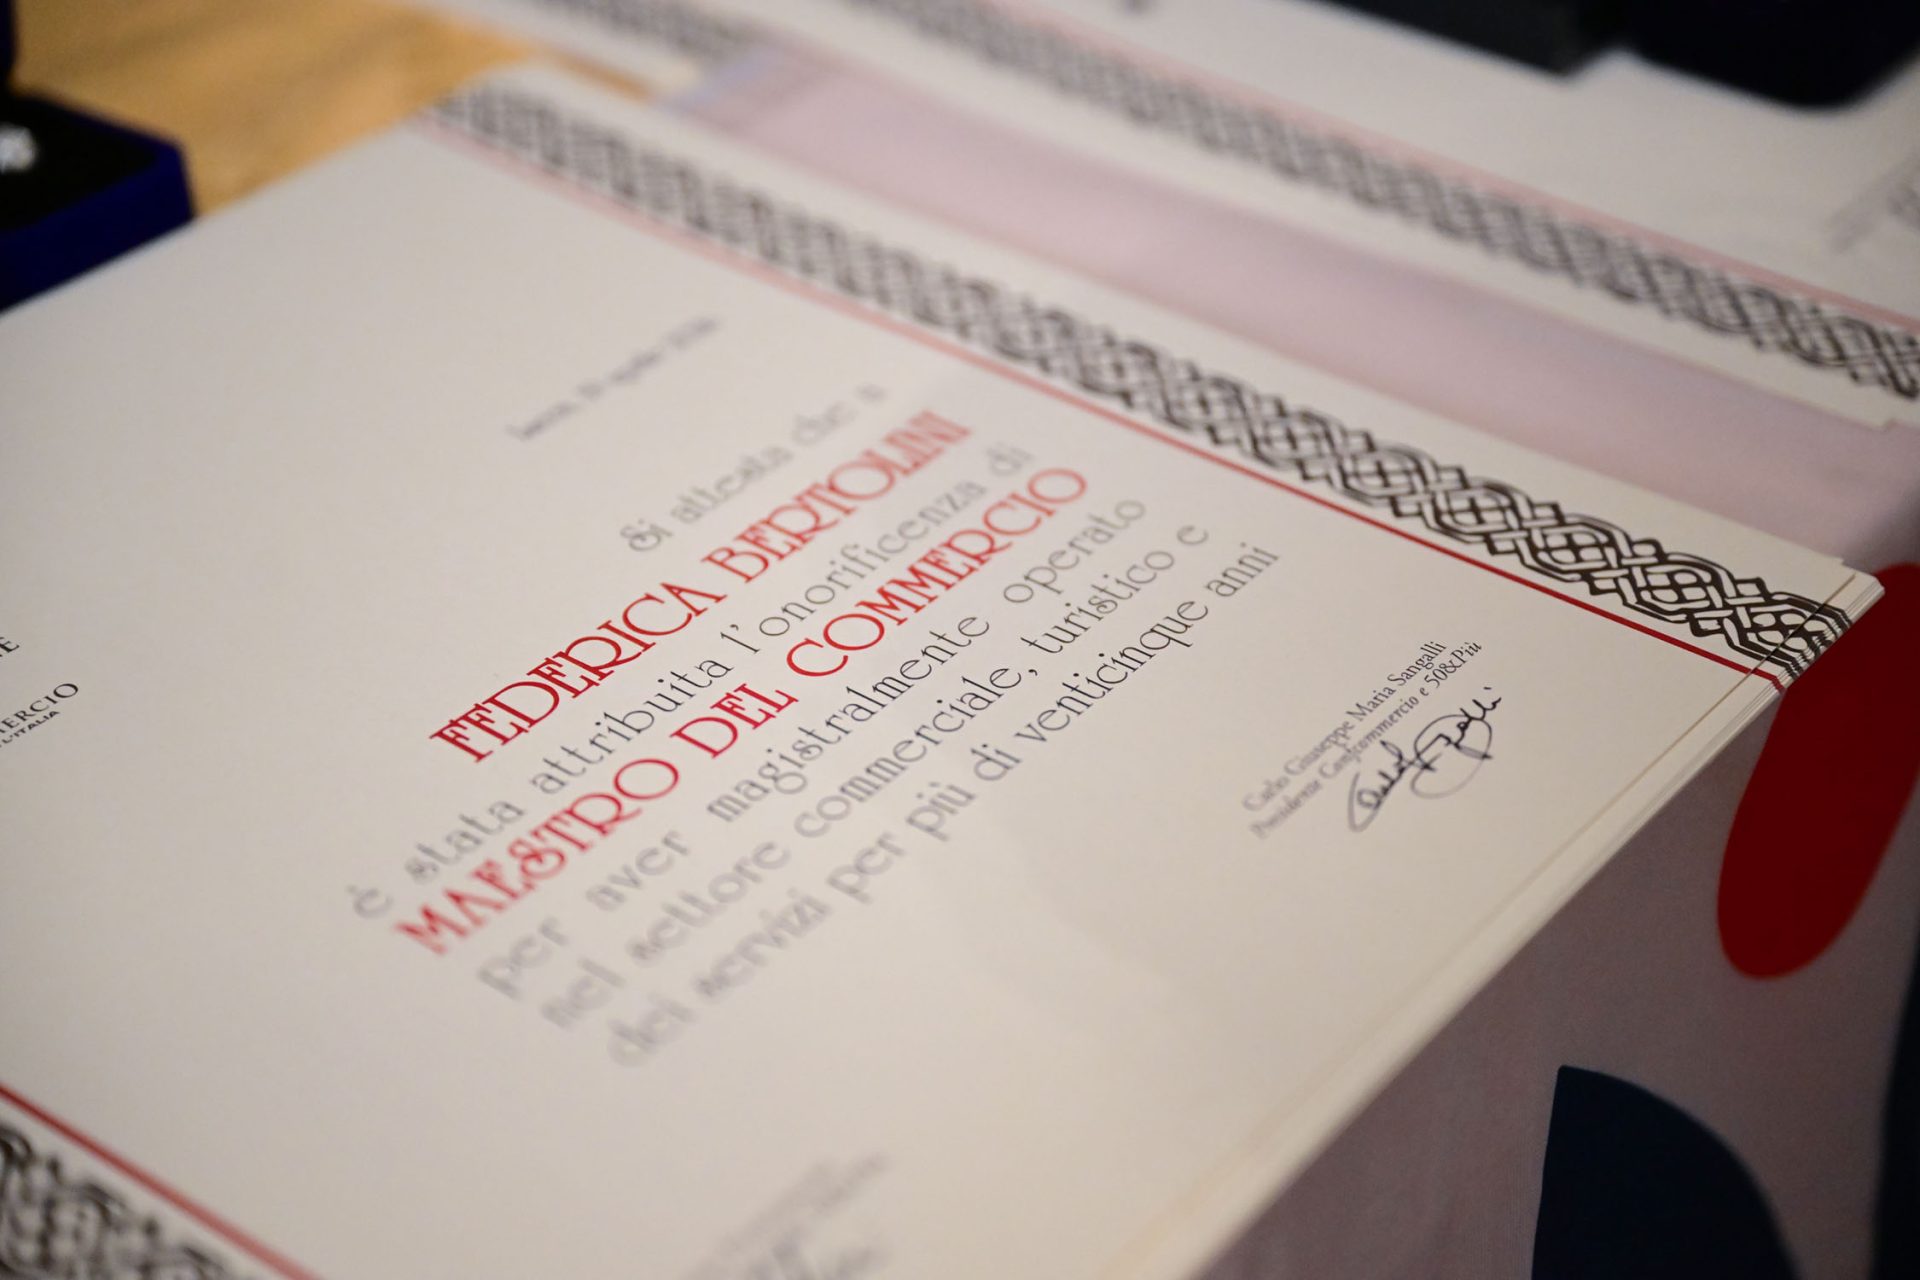 Si attesta che a
FEDERICA BERTOLINI
è stata attribuita l'onorificenza di
MAESTRO DEL COMMERCIO
per aver magistralmente operato
nel settore commerciale, turistico e
dei servizi per più di venticinque anni
Carlo Giuseppe Maria Sangalli
Presidente Confcommercio e 50&Più